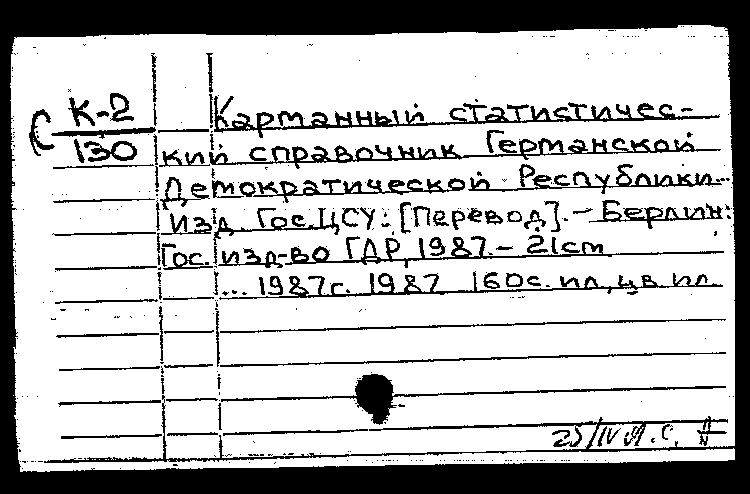 С К-2
130
Карманный статистичес-
кий справочник Германской
Демократической Республики...
Изд. Гос.ЦСУ: [Перевод].- Берлин:
Гос. изд-во ГДР, 1987.- 21см
... 1987г. 1987 160с. ил, цв ил
25/IV